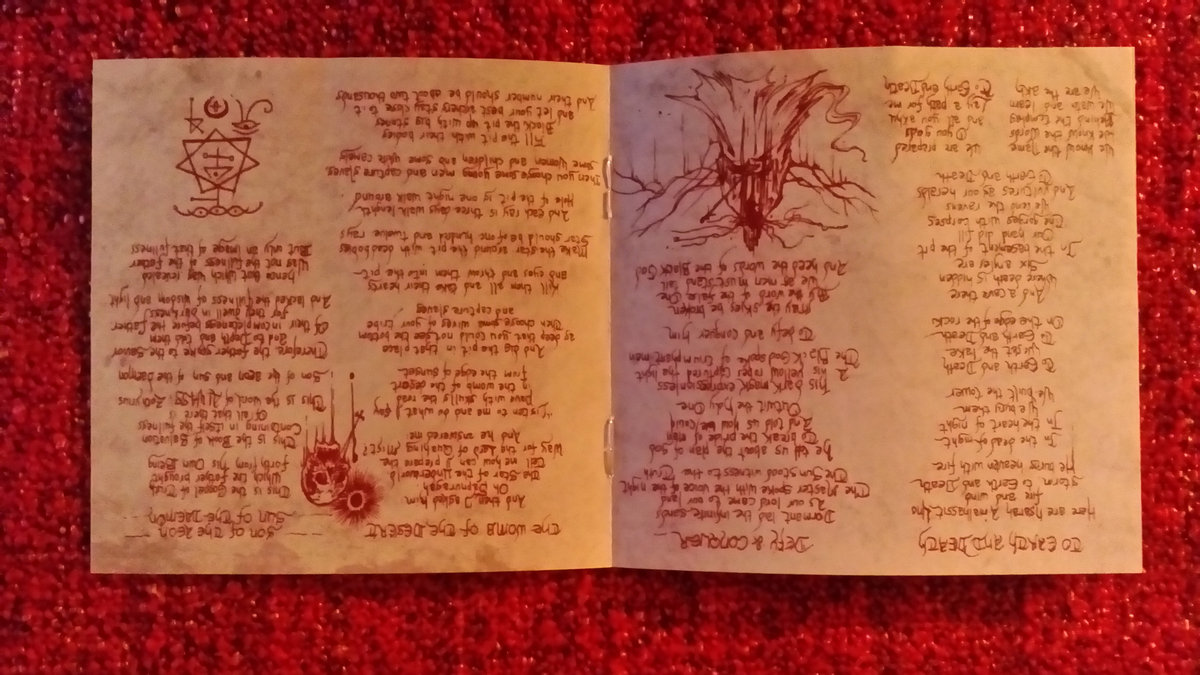 TO EARTH AND DEATH
Here are
fire and wind
storm to Earth and Death
He burns heaven with fire
In the dead of night
In the heart of night
We bury them
We built the tower
To Earth and Death
We set the lake
To Earth and Death
On the edge of the rock
And a cave there
Where death is hidden
Six are
In the basement of the pit
Our hand did fill
The gorges with corpses
We send the ravens
And vultures as our heralds
To Earth and Death
We know the name
We know the words
Behind the
We wait and learn
We are the sky
We are prepared
Do you gods
and all you akhu
Lay a path for me
To Earth and Death
DEFY & CONQUER
Dormant laid the infinite sands
As our lord came to our land
The Master spoke with the voice of the night
The Sun stood witness to the Truth
He tell us about the plan of god
To break the pride of man
And told us how you could
Outwit the Holy One
This dark magik expressionless
A his yellow robes captured the light
The Black God spoke of triumphant
To defy and conquer him
Pray the skies be broken
By the word of the false One
We as men must stand tall
And heed the words of the Black God
THE WOMB OF THE DESERT
And then I asked him
Oh Dahnuragah
The Star of the Underworld
Tell me how can I prepare the
way for the Lord of Quaking Mists?
And he answered me
"Listen to me and do what I say
Pave with skulls the road
in the womb of the desert
from the edge of sunset
And dig the pit in that place
as deep that you could not see the bottom
Then choose some wives of your tribe
and capture slaves
Kill them all and take their hearts
and eyes and throw them into the pit
Make the star around the pit with dead bodies
Star should be of one hundred and twelve rays
And each ray is three days walk length
Hole of the pit is one night walk around
Then you choose some young men and capture slaves
Some women and children and some white camels
Fill the pit with their bodies
Block the pit with up big stones
and let your best archers stay close to it
And their number should be about two thousands
SON OF THE AEON
SUN OF THE DAEMON
This is the Gospel of Truth
Which the Mother brought
forth from his Own Being
This is the Book of Salvation
Containing in itself the fulness
Of all that there is
This is the Word of
Son of the Aeon and Sun of the Daemon
Therefore, the father spoke to the Savior
God to Depth and told them
Of their incompleteness before the Father
For they dwell in darkness
And lacked the fullness of wisdom and light
hence that which was revealed
Was not the fullness of the Father
But only an image of that fullness